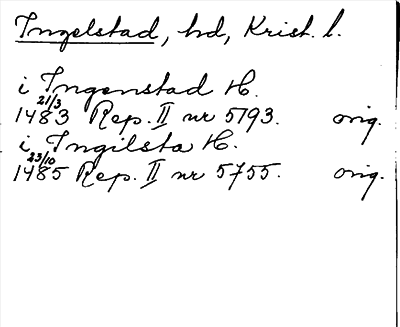 Ingelstad, hd, Krist. l.
i Ingenstad H.
1483 21/3 Rep. II nr 5193. orig.
i Ingilsta H.
1485 23/10 Rep. II nr 5755. orig.